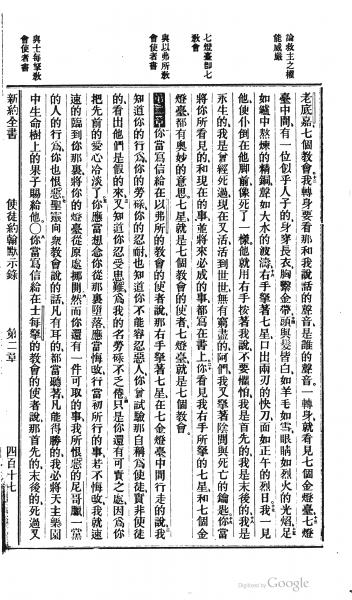 老底嘉七個教會。我轉身要看那和我說話的聲音是誰的聲音。一轉身、就看見七個金燈臺、七燈
臺中間有一位似乎人子的、身穿長衣、胸繫金帶、頭與髮皆白、如羊毛如雪、眼睛如烈火的光焰、足
如爐中熬煉的精銅、聲如大水的波濤、右手拏著七星、口出兩刃的快刀、面如正午的烈日、我一見
他、便仆倒在他脚前、像死了一樣、他就用右手按著我說、不要懼怕、我是首先的、我是末後的、我是
永生的、我是曾經死過、現在又活、活到世世、無有窮盡的、阿們、我又拏著陰間與死亡的鑰匙、你當
將你所看見的、和現在的事、並將來必成的事、都寫在書上、你看見我右手所拏的七星、和七個金
燈臺、都有奧妙的意思、七星、就是七個教會的使者、七燈臺、就是七個教會。
第二章 你當寫信給在以弗所的教會的使者說、那右手拏著七星、在七金燈臺中間行走的說、我
知道你的行為、你的勞碌、你的忍耐、也知道你不能容忍惡人、你曾試驗那自稱為使徒、實非使徒
的、看出他們是假的來、又知道你忍受患難、為我的名勞碌不倦、只是你還有可責之處、因為你
把先前的愛心冷淡了、你應當想念你從那裏墮落、應當悔改、行當初所行的事、若不悔改、我就速
速的臨到你那裏、將你的燈臺從原處挪開、然而你還有一件可取的事、我所恨惡的尼哥臘一黨
的人的行為、你也恨惡、聖靈向衆教會說的話、凡有耳的、都當聽著、凡能得勝的、我必將天主樂園
中生命樹上的果子賜給他○你當寫信給在士每拏的教會的使者說、那首先的、末後的、死過又
論救主之權
能威嚴
七燈臺卽七
敎會
與以弗所敎
會使者書
與士每拏敎
會使者書
新約全書 使徒約翰默示錄 第二章 四百十七
Digitized by Google